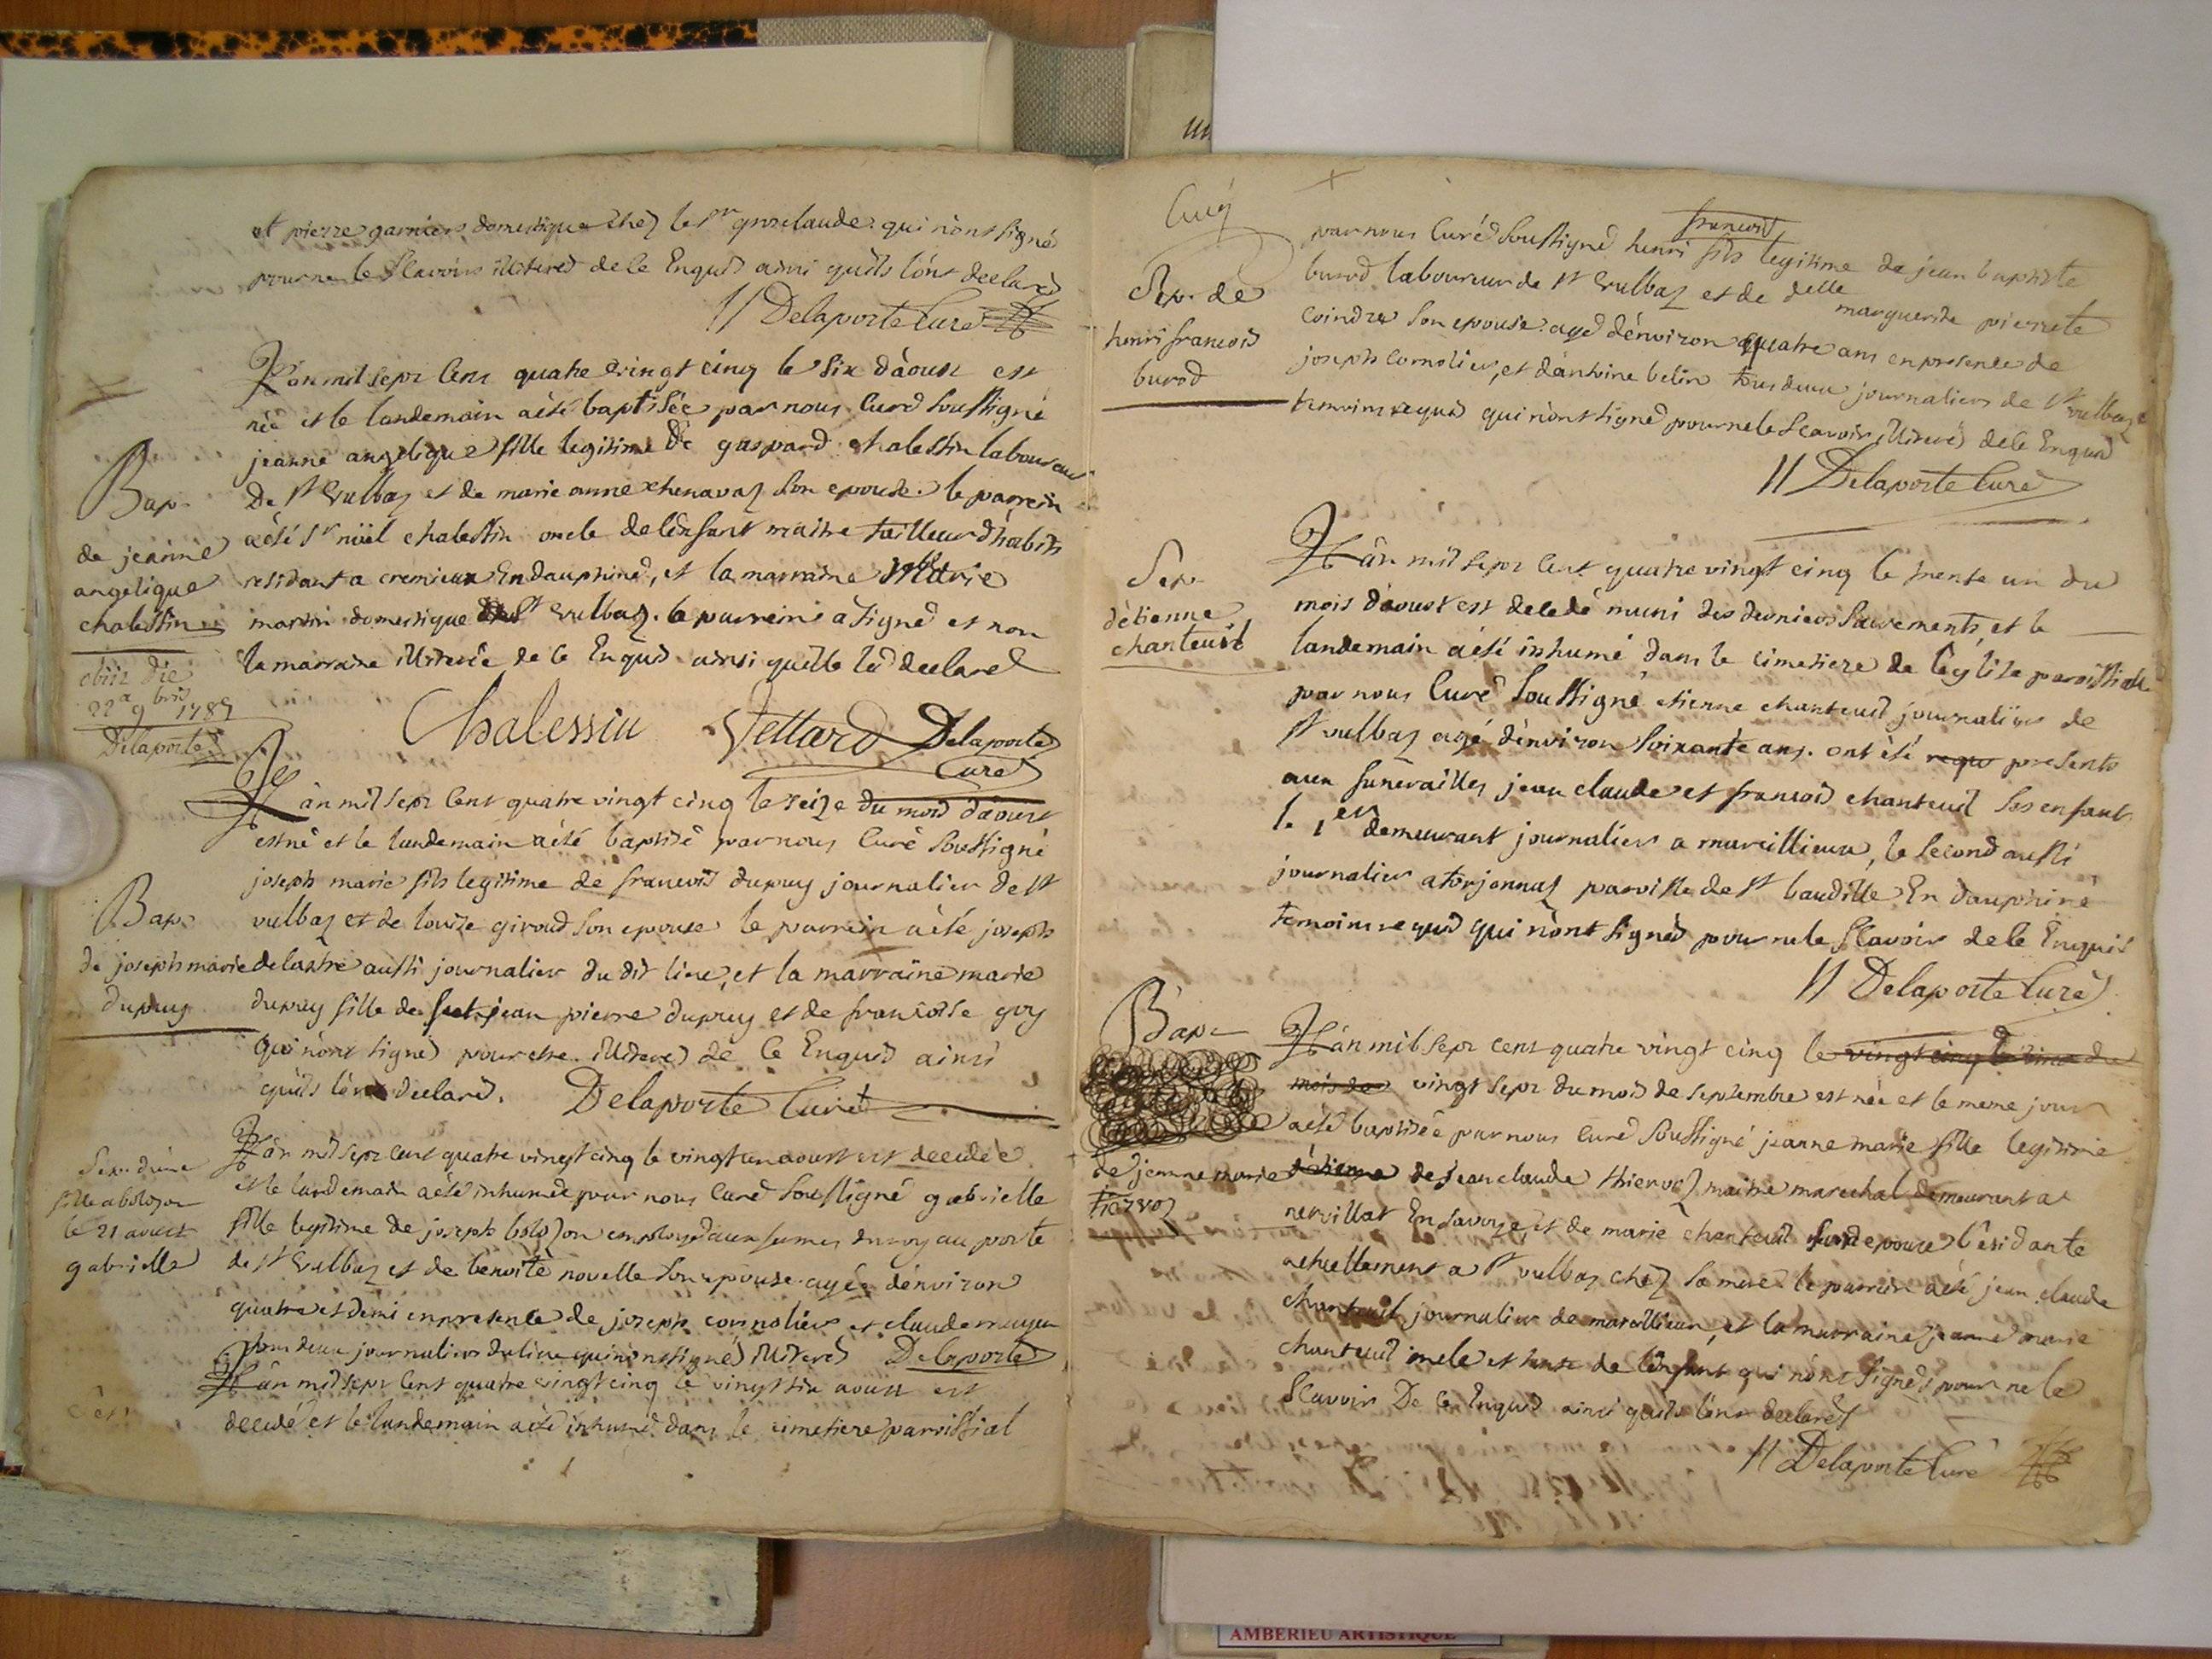 et pierre garnier domestique chez le sr groclaude qui n'ont signé
pour ne le scavoir illiteres de ce Enquis ainsi quils l'ont declaré
Delaporte curé
L'an mil sept cens quatre vingt cinq le six d'aoust est
née et le landemain a été baptisée par nous curé soussigné
jeanne angelique fille legitime de gaspard chalessin laboureur
Bap.
de jeanne
angelique
chalessin
obiit die
22a 9bris 1789
Delaporte
De st vulbaz et de marie anne chenavaz son epouse. le parrein
a été sr noël chalessin oncle de l'enfant maitre tailleur d'habits
residant a cremieux En dauphiné, et la marraine marie
martin domestique st vulbaz. le parrein a signé et non
la marraine illiterée de ce Enquis ainsi qu'elle l'a declaré
Chalessin Vettard Delaporte
Curé
L'an mil sept cent quatre vingt cinq le seize du mois d'aoust
est né et le landemain a été baptisé par nous curé soussigné
joseph marie fils legitime de francois dupuy journalier de st
Bap.
de joseph marie
dupuy
vulbaz et de louise giroud son epouse le parrein a été joseph
delastre aussi journalier du dit lieu, et la marraine marie
dupuy fille de jean pierre dupuy et de francoise goy
qui n'ont signé pour etre illiteres de ce Enquis ainsi
quils l'ont declaré. Delaporte curé
Sep. d'une
fille a bolozon
le 21 aoust
gabrielle
L'an mil sept cent quatre vingt cinq le vingt un aoust est decedée
et le landemain a été inhumée par nous curé soussigné gabrielle
fille legitime de joseph bolozon employé aux fermes du roy au porte
de st vulbaz et de benoite novelle son epouse agée d'environ
quatre et demi en presence de joseph cornolier et claude
tous deux journaliers du lieu qui n'ont signé illiteres Delaporte
L'an mil sept cent quatre vingt cinq le vingt six aoust est
decedé et le landemain a été inhumé dans le cimetiere paroissial
Sep. de
henri francois
burod
par nous curé soussigné henri francois fils legitime de jean baptiste
burod laboureur de st vulbaz et de delle marguerite pierrete
coindre son epouse agé d'environ quatre ans en presence de
joseph cornolier, et d'antoine belin tous deux journaliers de st vulbaz
temoins requis qui n'ont signé pour ne le scavoir illiterés de ce Enquis
Delaporte curé
Sep.
d'etienne
chanteuil
L'an mil sept cent quatre vingt cinq le trente un du
mois d'aoust est decedé muni des derniers sacrements, et le
landemain a été inhumé dans le cimetiere de l'eglise paroissiale
par nous curé soussigné etienne chanteuil journalier de
st vulbaz agé d'environ soixante ans. ont été requis presents
aux funerailles jean claude et francois chanteuil ses enfants
le 1er demeurant journalier a marcillieux, le second aussi
journalier a torjonnaz paroisse de st baudille En dauphiné
temoins requis qui n'ont signés pour ne le scavoir de ce Enquis
Delaporte curé
Bap.
de jeanne marie
tiervoz
L'an mil sept cent quatre vingt cinq le vingt cinq du
mois de vingt sept du mois de septembre est née et le meme jour
a été baptisée par nous curé soussigné jeanne marie fille legitime
d'etienne de jean claude thiervoz maitre marechal demeurant a
nervillat En savoye, et de marie chanteuil son epouse residante
actuellement a st vulbaz chez sa mere le parrein a été jean claude
chanteuil journalier de marcillieux, et la marraine jeanne marie
chanteuil oncle et tante de l'enfant qui n'ont signés pour ne le
scavoir De ce Enquis ainsi quils l'ont declarés
Delaporte curé
AMBERIEU ARTISTIQUE